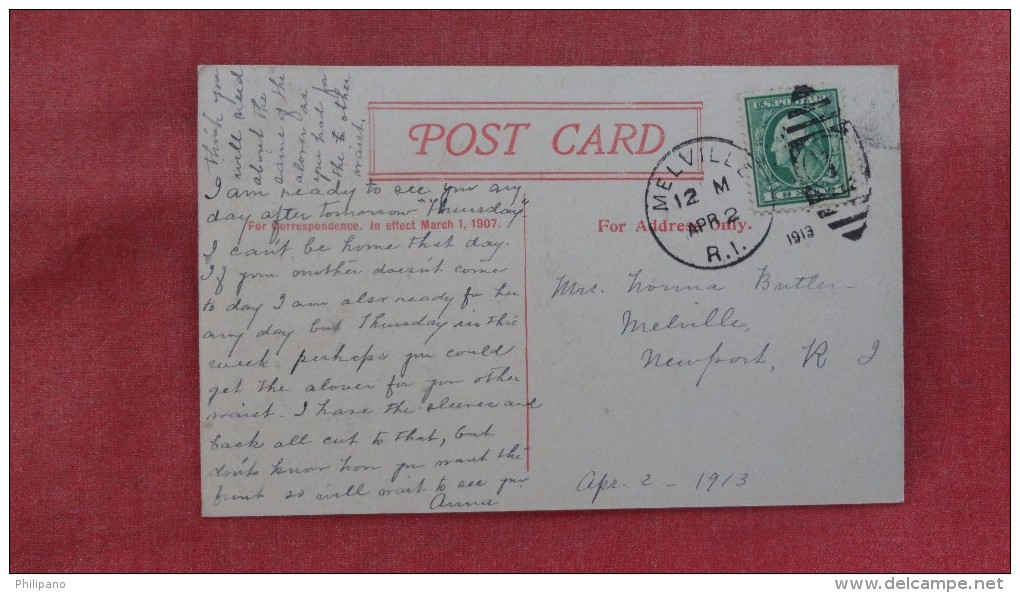 I think you
will need
about the
same of the
alover as
you had for
the other
waist.
POST CARD
I am ready to see you any
day after tomorrow "Thursday"
For Correspondence. In effect March 1, 1907.
I can't be home that day.
If your mother doesn't come
to day I am also ready for her
any day but Thursday in this
week. perhaps you could
get the alover for your other
waist. I have the sleeves and
back all cut to that, but
don't know how you want the
front so will wait to see you
Anna
U.S. POSTAGE
1 CENT
MELVILLE
12 M
APR 2
1913
R.I.
For Address Only.
Mrs. Norma Butler
Melville,
Newport, R I
Apr. 2 - 1913
Philipano
www.delcampe.net